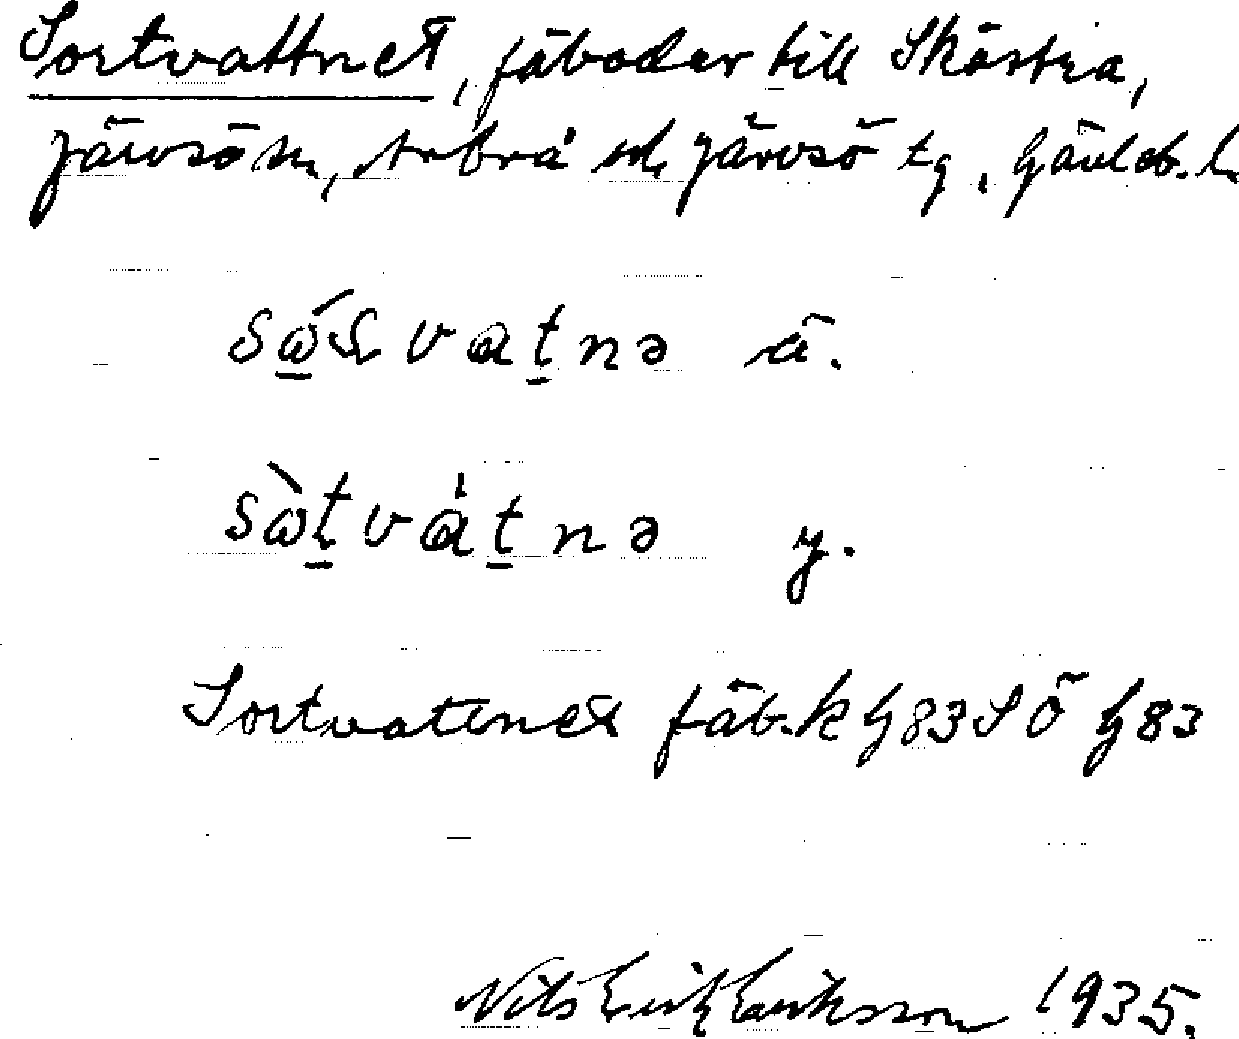 Sortvattnet, fäbodar till Skästra,
Järvsö sn, Arbrå och Järvsö tg, Gävleb. l.
ä.
y.
Sortvattnet fäb. k G 83 S Ö G 83
Nils Erik Eriksson 1935.